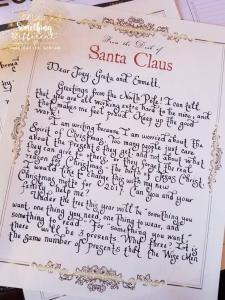 Something
Different
From the Desk of
Santa Claus
Dear Joey, Greta and Emmett,
Greetings from the North Pole! I can tell
that you are all working extra hard to be nice, and
that makes me feel proud. Keep up the good
work!
I am writing because I am worried about the
Spirit of Christmas. Too many people just care
about the presents they get and not about what
they can give to others, or they forget the real
reason for Christmas: The birth of Jesus Christ.
I would like to change this with my new
Christmas motto for 2017. Can you and your
family help me?
Under the tree this year will be "something you
want, one thing you need, one thing to wear, and
something to read." For "something you want",
there will be 3 presents. Why three? It is
the same number of presents that the Wise Men